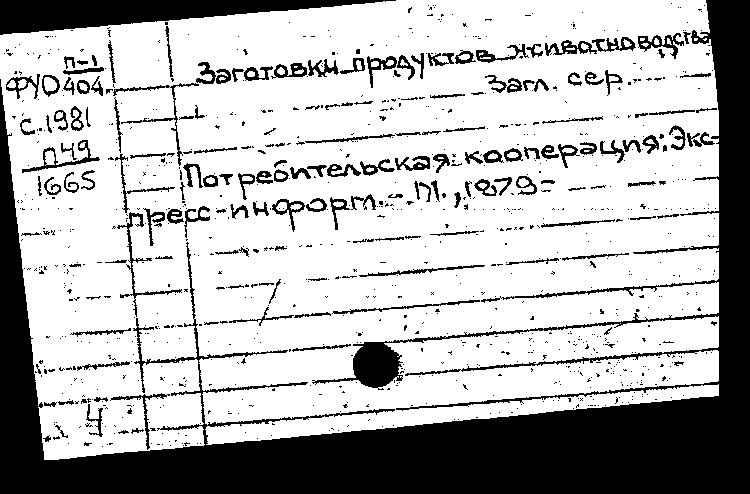 п-1
ФУО 404
с.1981
П49
1665
Заготовки продуктов животноводства
Загл. сер.
Потребительская кооперация: Экс-
пресс-информ. - М., 1979-
4